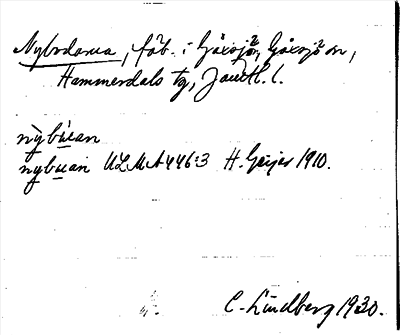 Nybodarna, fäb. i Gåxsjö, Gåxsjö sn,
Hammerdals tg, Jämtl. l.
nỳbùan
nybuan ULMA 446:3 H. Geijer 1910.
C. Lindberg 1930.